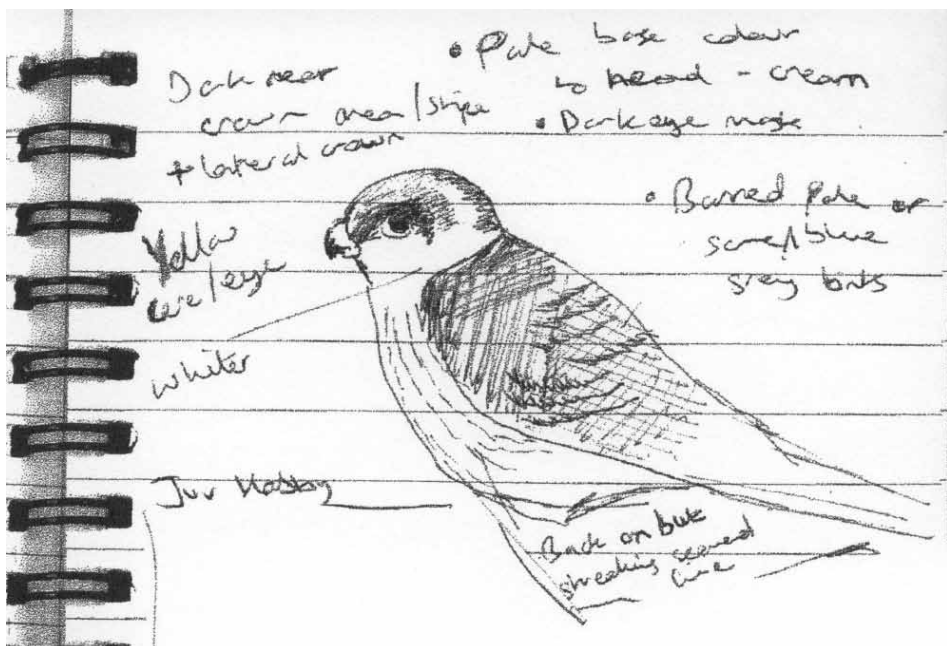 Dark rear
crown area/stripe
+ lateral crown
• Pale base colour
to head - cream
• Dark eye mask
• Barred pale or
blue
grey bits
Yellow
cere/eye
whiter
Juv Hobby
Back on
streaking
line